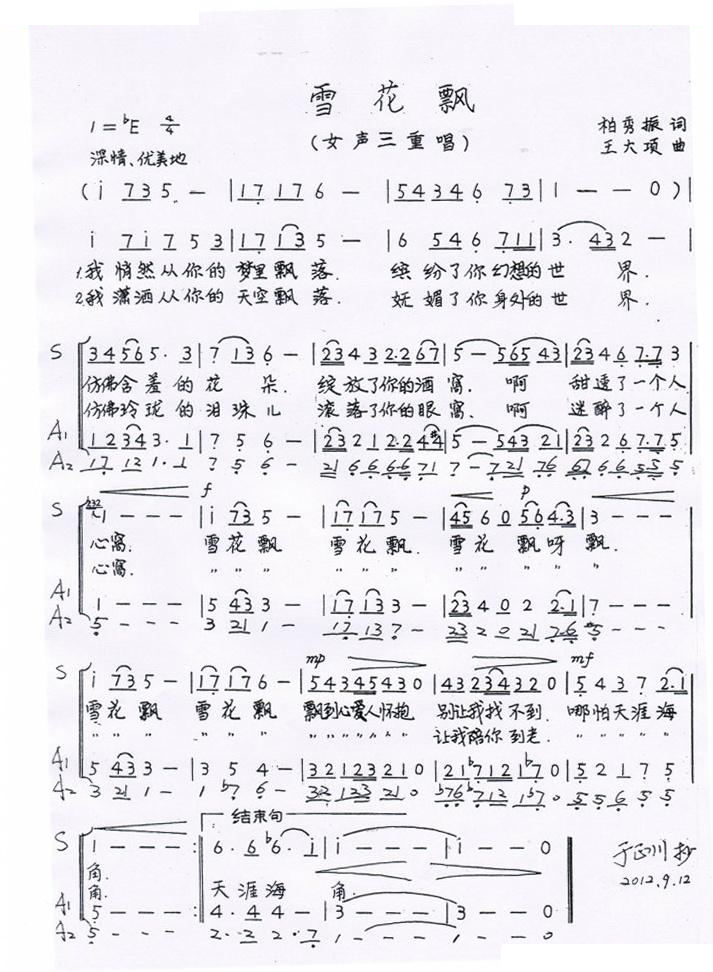 雪花飘
1=♭E 4/4
(女声三重唱)
柏秀振 词
深情、优美地
王大项 曲
(i 7 3 5 - | 1 7 1 7 6 - | 5 4 3 4 6 7 3 | 1 - - 0)|
i 7 i 7 5 3 | 1 7 1 3 5 - | 6 5 4 6 7 1 1 | 3. 4 3 2 - |
1.我悄然从你的梦里飘落. 缤纷了你幻想的世界.
2.我潇洒从你的天空飘落. 妩媚了你身外的世界.
S 3 4 5 6 5. 3 | 7 1 3 6 - | 2 3 4 3 2.2 6 7 | 5 - 5 6 5 4 3 | 2 3 4 6 7.7 3
仿佛含羞的花朵. 绽放了你的酒窝. 啊 甜透了一个人
仿佛玲珑的泪珠儿 滚落了你的眼窝. 啊 迷醉了一个人
A1 1 2 3 4 3. 1 | 7 5 6 - | 2 3 2 1 2.2 4 #4 | 5 - 5 4 3 2 1 | 2 3 2 6 7.7 5
A2 1 7 1 2 1. 1 | 7 5 6 - | 2 1 6 6 6.6 7 1 | 7 - 7 2 1 7 6 | 6 7 6 6 5.5 5
f p
S 1 - - - | i 7 3 5 - | 1 7 1 7 5 - | 4 5 6 0 5 6 4.3 | 3 - - -
心窝. 雪花飘 雪花飘. 雪花飘呀飘.
心窝. 〃 〃 〃 〃 〃 〃 〃 〃 〃 〃 〃
A1 1 - - - | 5 4 3 3 - | 1 7 1 3 3 - | 2 3 4 0 2 2.1 | 7 - - -
A2 5 - - - | 3 2 1 1 - | 1 7 1 3 7 - | 2 3 2 0 2 1 7.6 | #5 - - -
mp mf
S i 7 3 5 - | 1 7 1 7 6 - | 5 4 3 4 5 4 3 0 | 4 3 2 3 4 3 2 0 | 5 4 3 7 2.1
雪花飘 雪花飘. 飘到心爱人怀抱 别让我找不到. 哪怕天涯海
〃 〃 〃 〃 〃 〃 〃 〃 〃 〃 〃 〃 〃 让我陪你到老. 〃 〃 〃 〃 〃
A1 5 4 3 3 - | 3 5 4 - | 3 2 1 2 3 2 1 0 | 2 1 ♭7 1 2 1 ♭7 0 | 5 2 1 7 5
A2 3 2 1 1 - | 1 ♭7 6 - | 3 2 1 2 3 2 1 0 | ♭7 6 ♭7 1 2 1 ♭7 0 | 5 5 6 5 5
结束句
S 1 - - - :| 6. 6 ♭6. i | i - - - | i - - 0 ‖
角.
角. 天涯海 角.
A1 5 - - - :| 4. 4 4 - | 3 - - - | 3 - - 0
A2 5 - - - | 2. 2 2. 7 | 1 - - - | 1 - - 0
于正川 抄
2012.9.12